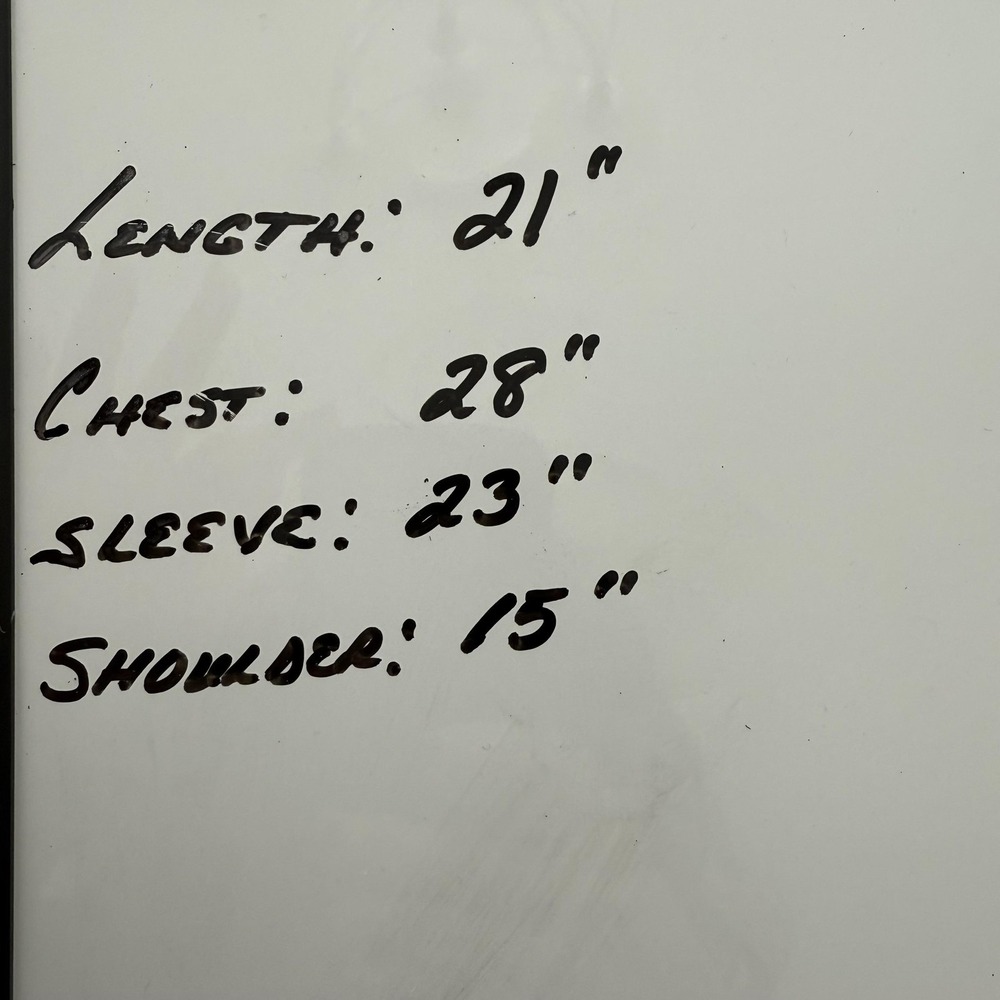 LENGTH: 21"
CHEST: 28"
SLEEVE: 23"
SHOULDER: 15"